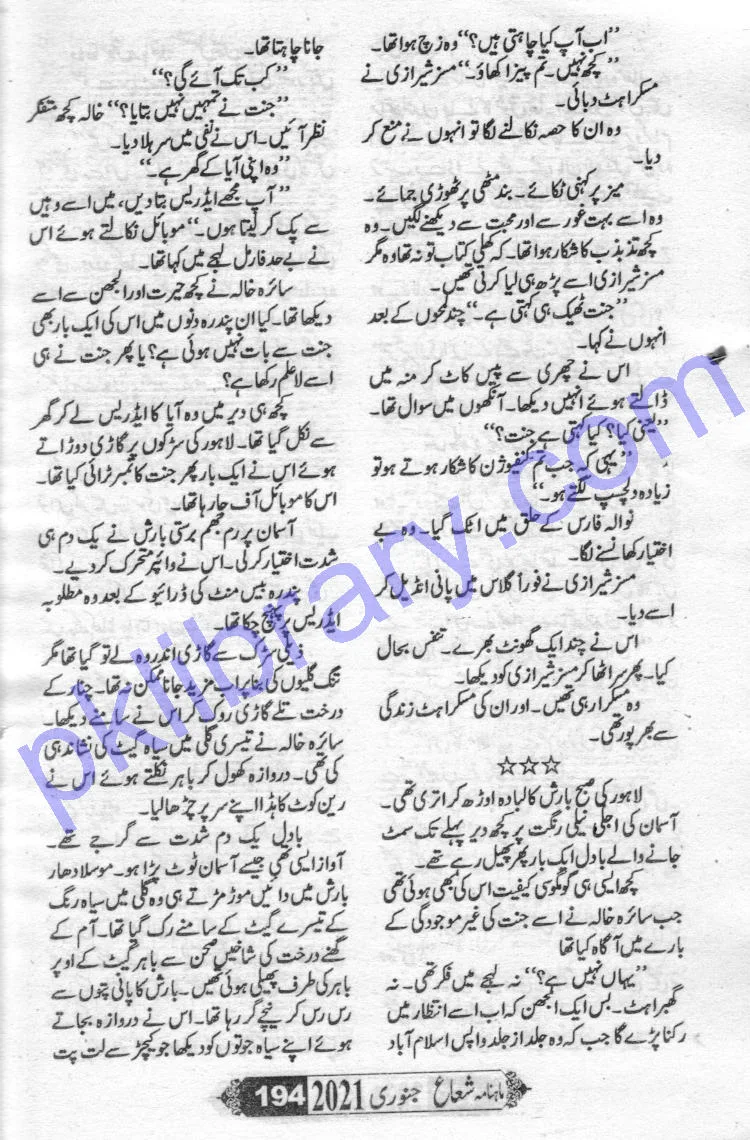 ”اب آپ کیا چاہتی ہیں؟“ وہ زچ ہوا تھا۔
”کچھ نہیں۔ تم پیزا کھاؤ۔“ مسز شیرازی نے
مسکراہٹ دبائی۔
وہ ان کا حصہ نکالنے لگا تو انہوں نے منع کر
دیا۔
میز پر کہنی ٹکائے۔ بند مٹھی پر ٹھوڑی جمائے۔
وہ اسے بہت غور سے اور محبت سے دیکھنے لگیں۔ وہ
کچھ تذبذب کا شکار ہوا تھا۔ کہ کھلی کتاب تو نہ تھا وہ مگر
مسز شیرازی اسے پڑھ ہی لیا کرتی تھیں۔
”جنت ٹھیک ہی کہتی ہے۔“ چند لمحوں کے بعد
انہوں نے کہا۔
اس نے چھری سے پیس کاٹ کر منہ میں
ڈالتے ہوئے انہیں دیکھا۔ آنکھوں میں سوال تھا۔
”یعنی کیا؟ کیا کہتی ہے جنت؟“
”یہی کہ جب تم کنفیوژن کا شکار ہوتے ہو تو
زیادہ دلچسپ لگتے ہو۔“
نوالہ فارس کے حلق میں اٹک گیا۔ وہ بے
اختیار کھانسنے لگا۔
مسز شیرازی نے فوراً گلاس میں پانی انڈیل کر
اسے دیا۔
اس نے چند ایک گھونٹ بھرے۔ تنفس بحال
کیا۔ پھر سر اٹھا کر مسز شیرازی کو دیکھا۔
وہ مسکرا رہی تھیں۔ اور ان کی مسکراہٹ زندگی
سے بھرپور تھی۔
☆☆☆
لاہور کی صبح بارش کا لبادہ اوڑھ کر اتری تھی۔
آسمان کی اجلی نیلی رنگت پر کچھ دیر پہلے تک سمٹ
جانے والے بادل ایک بار پھر پھیل رہے تھے۔
کچھ ایسی ہی گومگوسی کیفیت اس کی بھی ہوئی تھی
جب سائرہ خالہ نے اسے جنت کی غیر موجودگی کے
بارے میں آگاہ کیا تھا
”یہاں نہیں ہے؟“ نہ لہجے میں فکر تھی۔ نہ
گھبراہٹ۔ بس ایک الجھن کہ اب اسے انتظار میں
رکنا پڑے گا جب کہ وہ جلد از جلد واپس اسلام آباد
جانا چاہتا تھا۔
”کب تک آئے گی؟“
”جنت نے تمہیں نہیں بتایا؟“ خالہ کچھ متفکر
نظر آئیں۔ اس نے نفی میں سر ہلا دیا۔
”وہ اپنی آپا کے گھر ہے۔“
”آپ مجھے ایڈریس بتا دیں، میں اسے وہیں
سے پک کر لیتا ہوں۔“ موبائل نکالتے ہوئے اس
نے بے حد فارمل لہجے میں کہا تھا۔
سائرہ خالہ نے کچھ حیرت اور الجھن سے اسے
دیکھا تھا۔ کیا ان پندرہ دنوں میں اس کی ایک بار بھی
جنت سے بات نہیں ہوئی ہے؟ یا پھر جنت نے ہی
اسے لاعلم رکھا ہے؟
کچھ ہی دیر میں وہ آپا کا ایڈریس لے کر گھر
سے نکل گیا تھا۔ لاہور کی سڑکوں پر گاڑی دوڑاتے
ہوئے اس نے ایک بار پھر جنت کا نمبر ٹرائی کیا تھا۔
اس کا موبائل آف جا رہا تھا۔
آسمان پر رم جھم برستی بارش نے یک دم ہی
شدت اختیار کر لی۔ اس نے وائپر متحرک کر دیے۔
پندرہ بیس منٹ کی ڈرائیو کے بعد وہ مطلوبہ
ایڈریس پر پہنچ چکا تھا۔
ذیلی سڑک سے گاڑی اندر وہ لے تو گیا تھا مگر
تنگ گلیوں کی بنا پر اب مزید جانا ممکن نہ تھا۔ چنار کے
درخت تلے گاڑی روک کر اس نے سامنے دیکھا۔
سائرہ خالہ نے تیسری گلی میں سیاہ گیٹ کی نشاندہی
کی تھی۔ دروازہ کھول کر باہر نکلتے ہوئے اس نے
رین کوٹ کا ہڈ اپنے سر پر چڑھا لیا۔
بادل یک دم شدت سے گرجے تھے۔
آواز ایسی تھی جیسے آسمان ٹوٹ پڑا ہو۔ موسلا دھار
بارش میں دائیں موڑ مڑتے ہی وہ گلی میں سیاہ رنگ
کے تیسرے گیٹ کے سامنے رک گیا تھا۔ آم کے
گھنے درخت کی شاخیں صحن سے باہر گیٹ کے اوپر
باہر کی طرف پھیلی ہوئی تھیں۔ بارش کا پانی پتوں سے
رس رس کر نیچے گر رہا تھا۔ اس نے دروازہ بجاتے
ہوئے اپنے سیاہ جوتوں کو دیکھا جو کیچڑ سے لت پت
ماہنامہ شعاع جنوری 2021 194
pklibrary.com